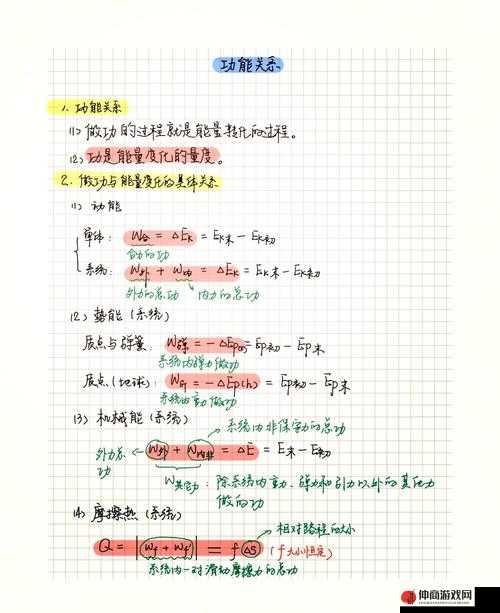 功能关系
1. 功能关系
(1) 做功的过程就是能量转化的过程。
(2) 功是能量变化的量度。
2. 做功与能量变化的具体关系
(1) 动能
单体: W合 = ΔEk = Ek末 - Ek初
合力的功
系统: W外 + W内 = ΔEk = Ek末 - Ek初
外力的总功 内力的总功
(2) 势能 (系统)
质点与弹簧: W弹 = -ΔEp = Ep初 - Ep末
系统内弹力做功
质点(地球): = -ΔEp(h) = Ep初 - Ep末
系统内重力做功
(3) 机械能 (系统)
系统内非保守力的总功
外力总功
W外 + W内非 = ΔE = E末 - E初
W其它力: 除系统内重力、弹力和引力以外的其他力
做的功
(4) 摩擦热 (系统)
相对路程的大小
Q = |Wf + Wf'| = f ΔS (f大小恒定)
系统内一对滑动摩擦力的总功
仲商游戏网